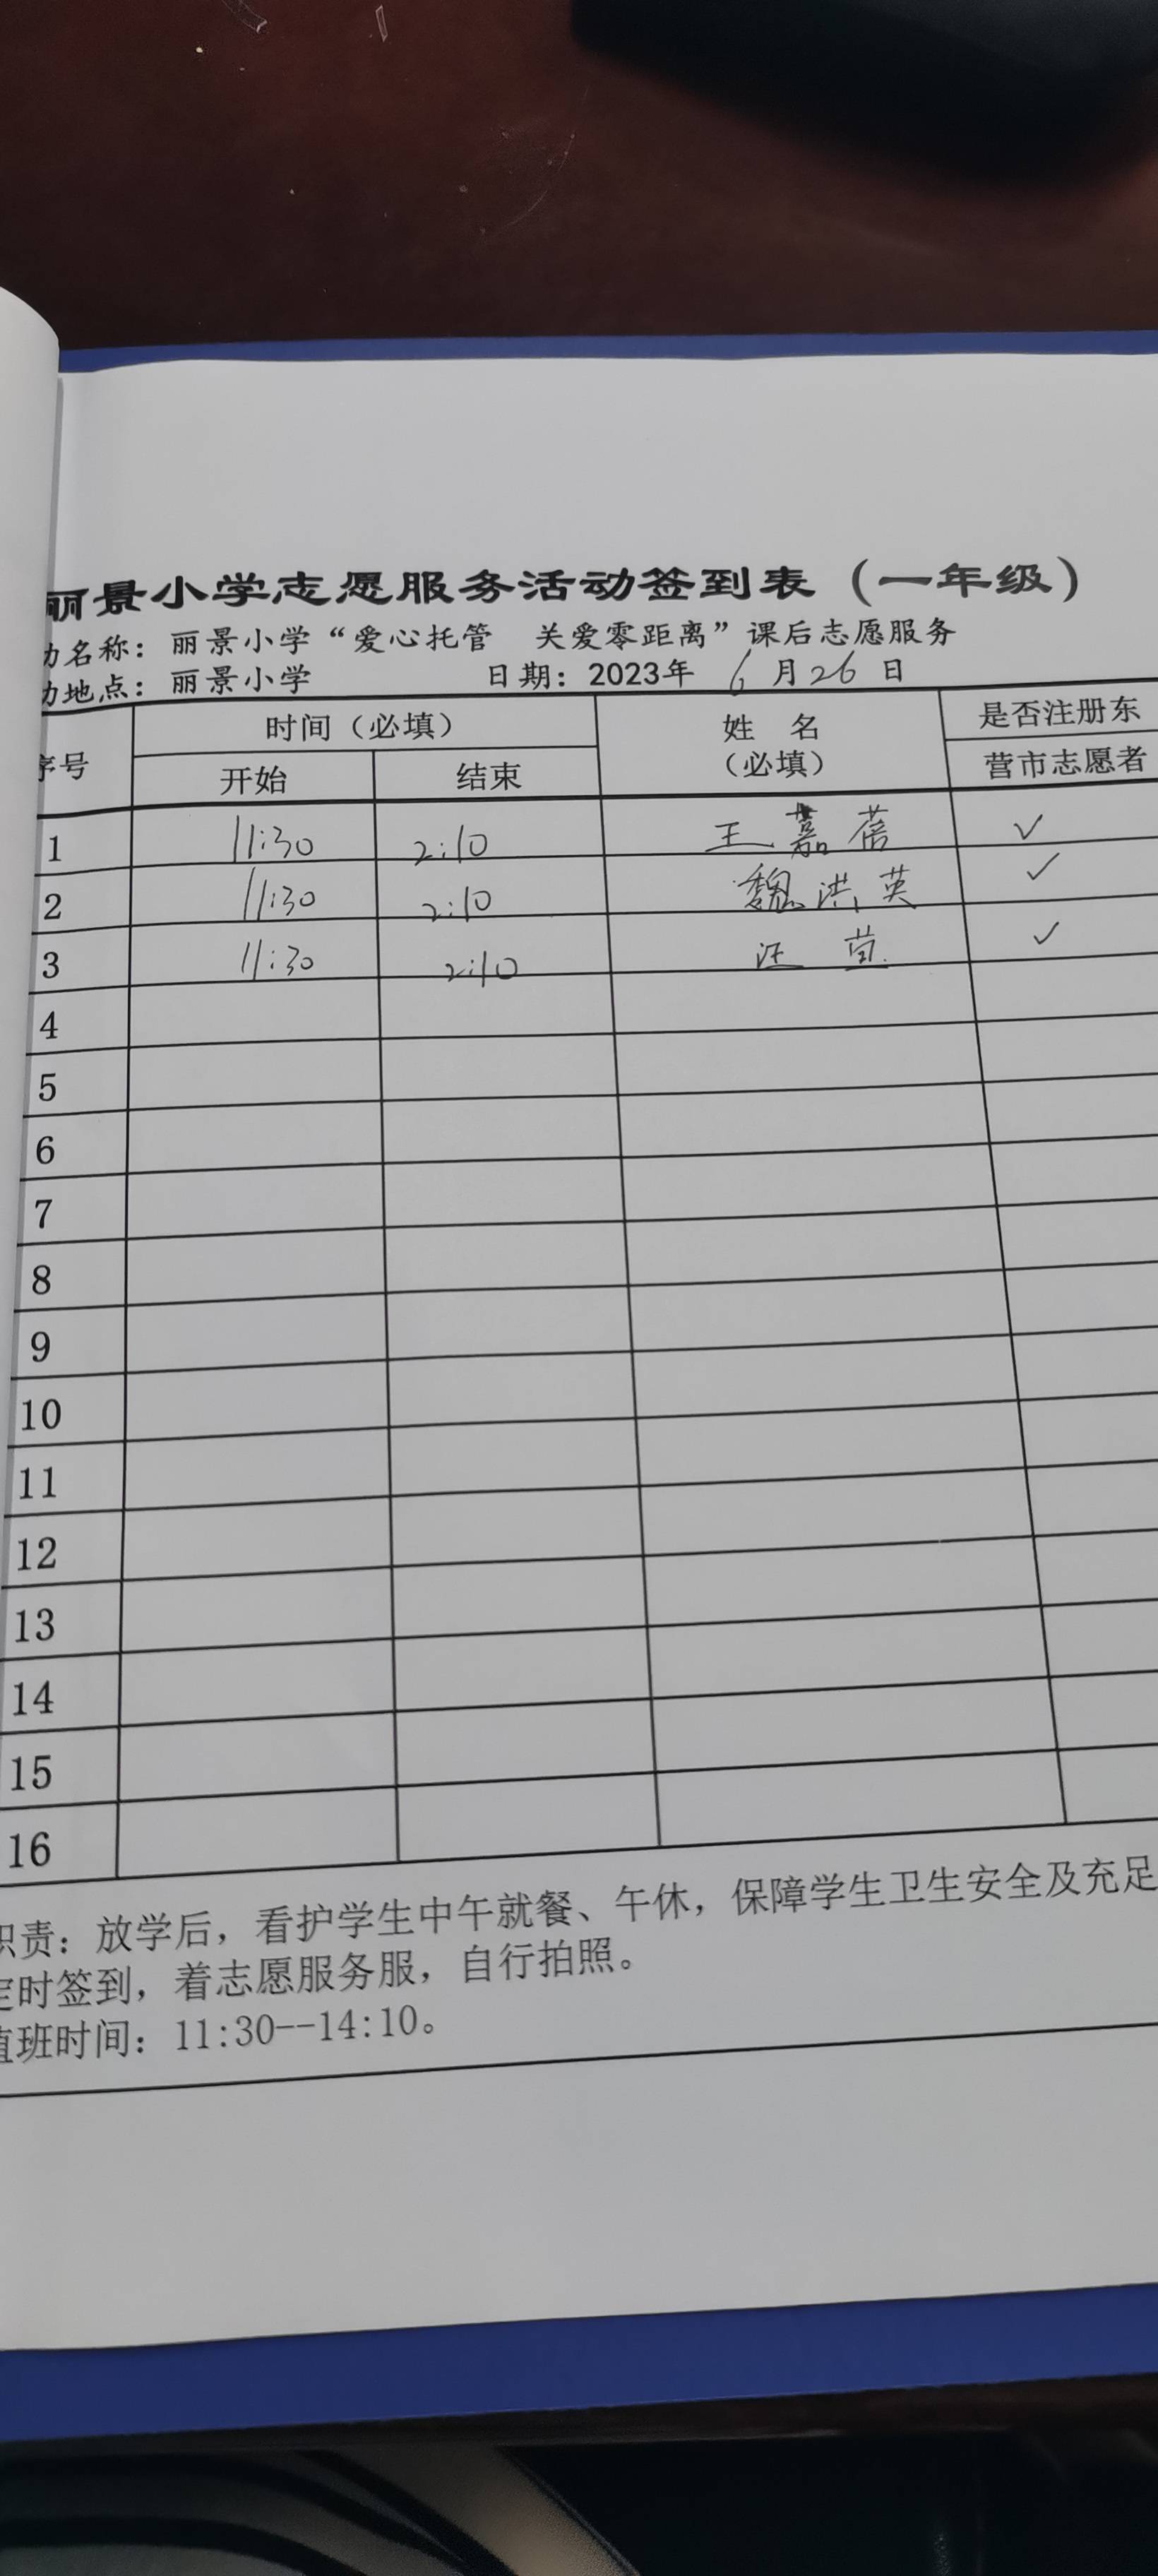 丽景小学志愿服务活动签到表（一年级）
动名称：丽景小学“爱心托管 关爱零距离”课后志愿服务
动地点：丽景小学 日期：2023年 6 月 26 日
序号 时间（必填） 姓 名 （必填） 是否注册东营市志愿者
开始 结束
1 11:30 2:10 王嘉蓓 ✓
2 11:30 2:10 魏洪英 ✓
3 11:30 2:10 汪 ✓
4
5
6
7
8
9
10
11
12
13
14
15
16
职责：放学后，看护学生中午就餐、午休，保障学生卫生安全及充足
定时签到，着志愿服务服，自行拍照。
值班时间：11:30--14:10。